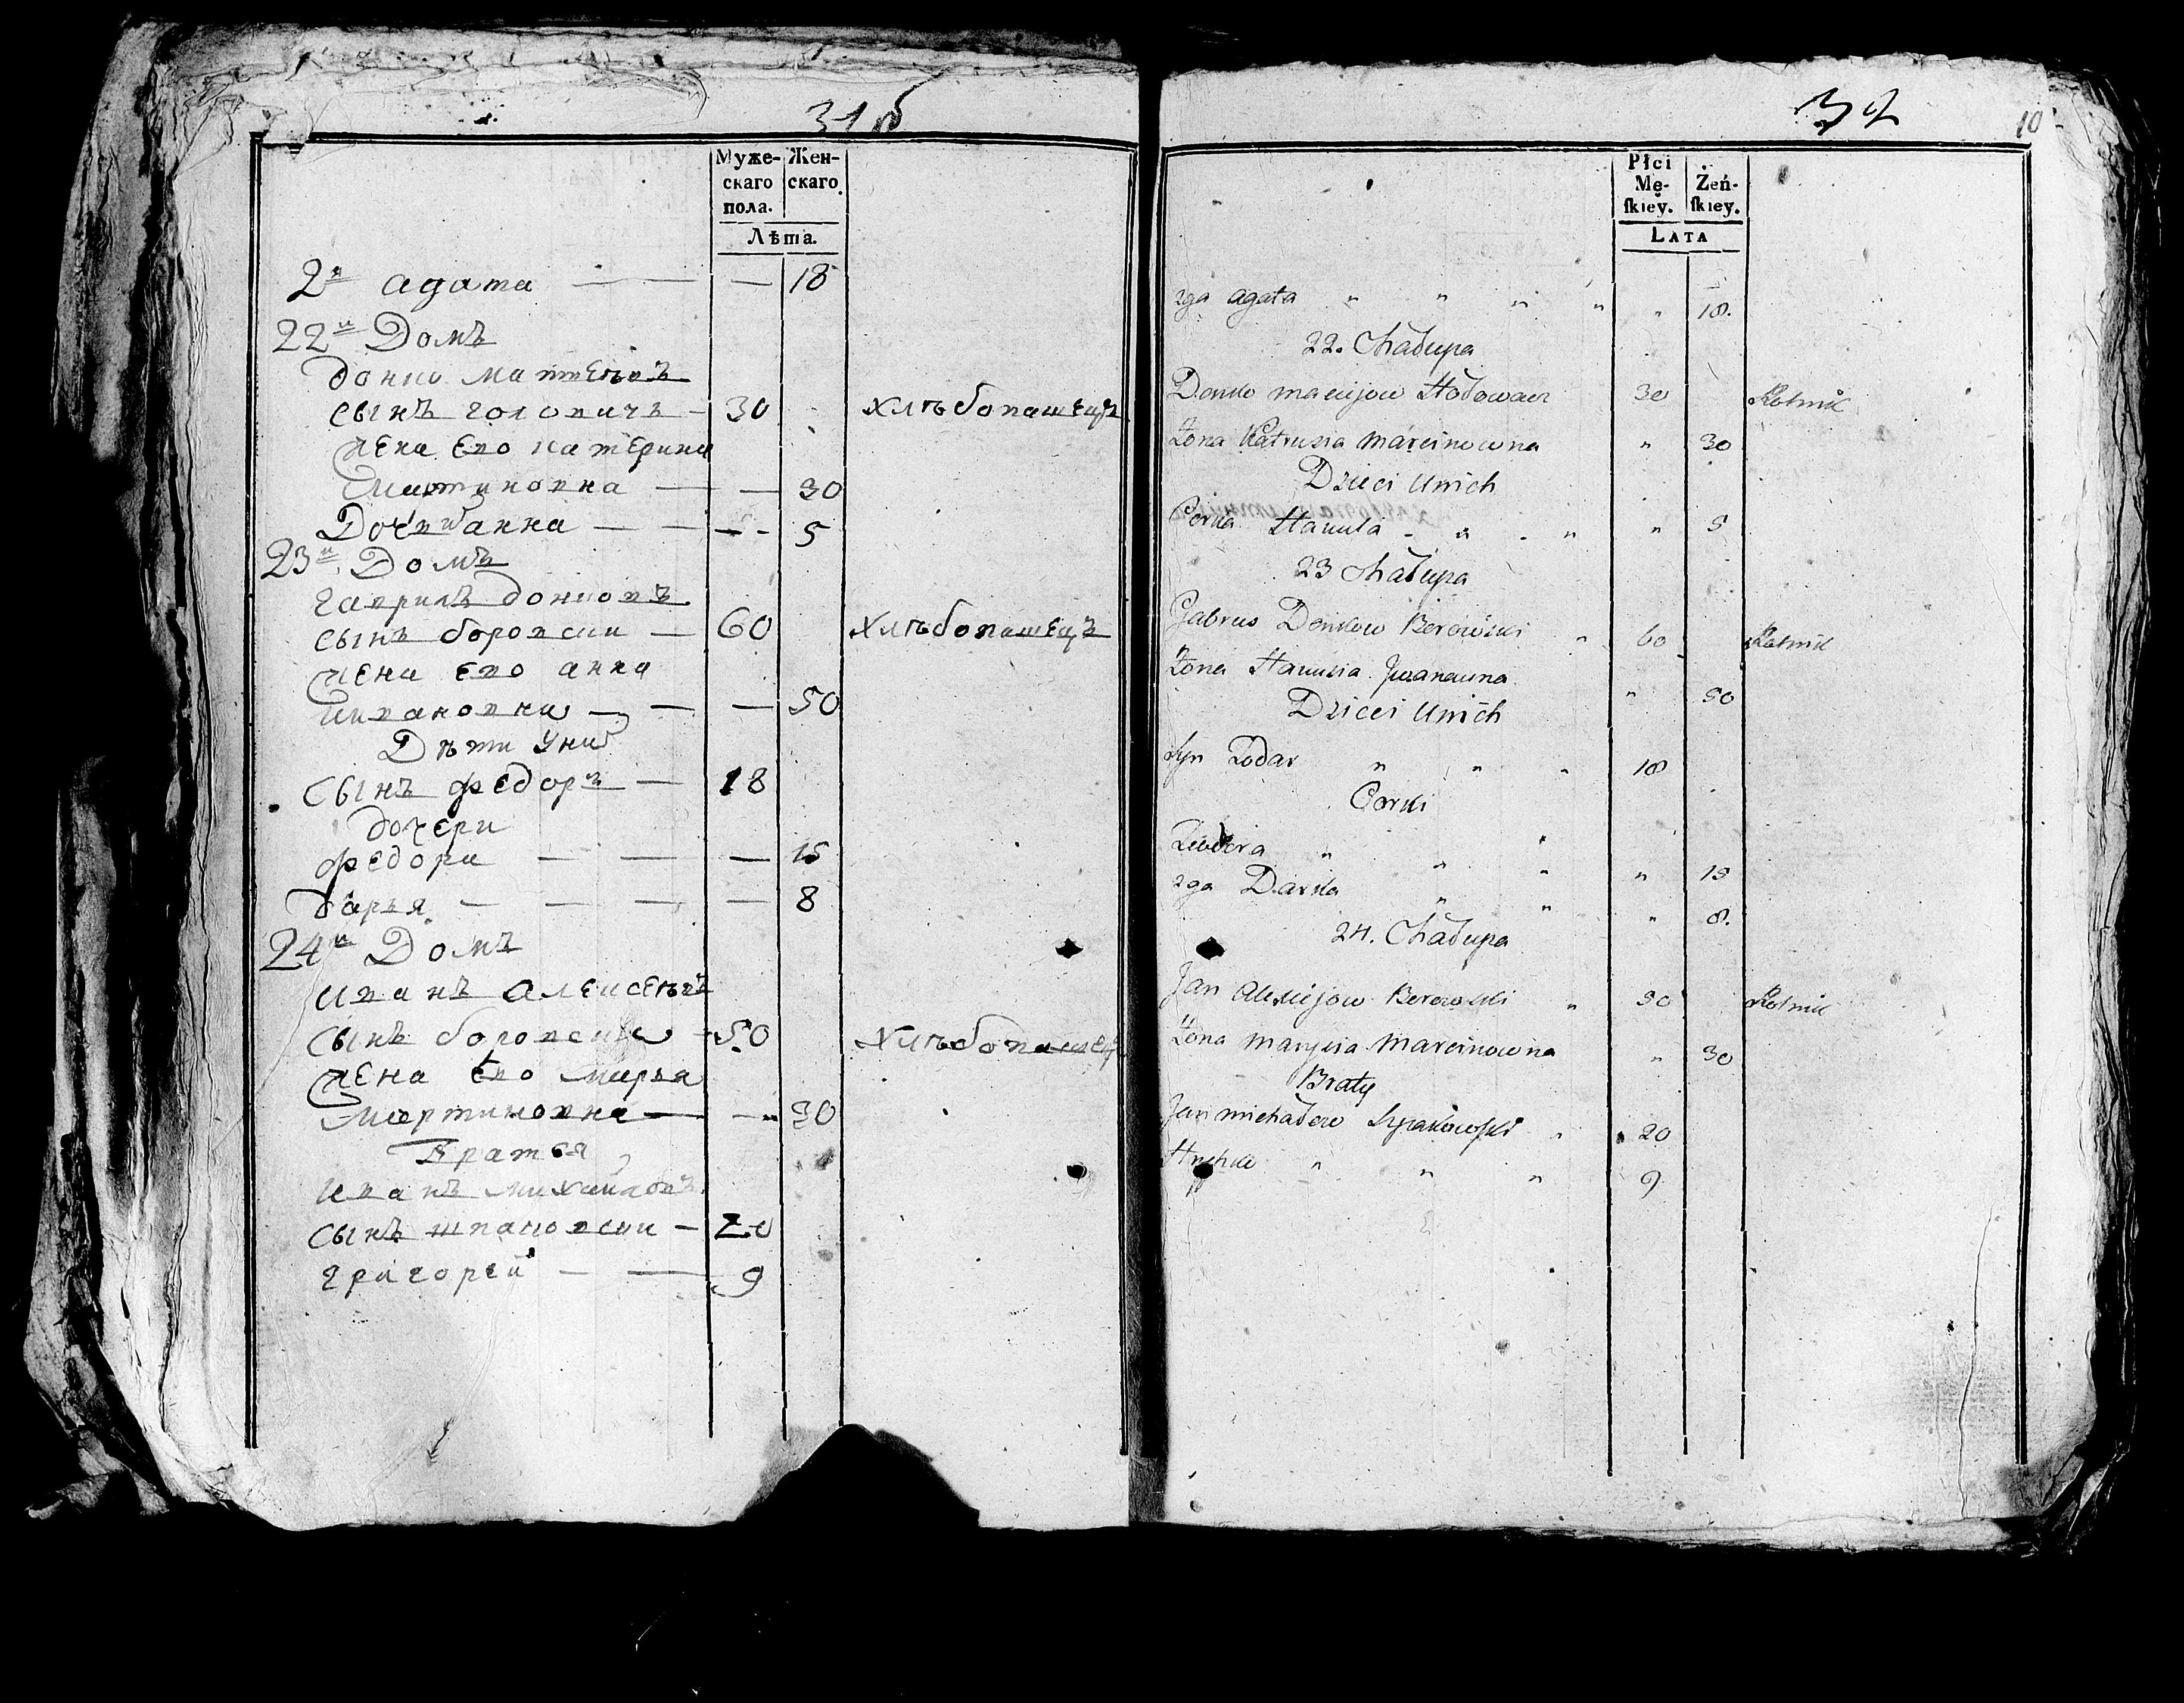 31 б
Муже-
скаго
пола.
Жен-
скаго.
Лѣта.
2я агата — — — 18
22й Домъ
донко матвѣевъ
сынъ головичъ — 30 хлѣбопашецъ
жена его катерина
мартиновна — — 30
Дочь ганна — — — 5
23й Домъ
гаврилъ донковъ
сынъ боровски — 60 хлѣбопашецъ
жена его анна
ивановна — — — 50
Дѣти у них
сынъ федоръ — 18
дочери
федора — — — 15
дарья — — — — 8
24й Домъ
иванъ алексеевъ
сынъ боровски — 50 хлѣбопашец
жена его марья
мартиновна — — 30
Братья
иванъ михайловъ
сынъ шпаковски — 20
григорей — — 9
32
10
Płci
Mę-
skiey.
Żeń-
skiey.
LATA
2ga agata " " " " " 18.
22. Chałupa
Donko maciijow Hołowacz 30 Rolnik
Żona Katrusia marcinowna " 30
Dzieci Unich
Corka Hanula " " " " 5
23 Chałupa
Gabrus Donkow Berowski " 60 Rolnik
Żona Hanusia Jwanowna " 50
Dzieci Unich
Syn Todar " " " 18
Corki
" " " " 15
2ga Darka " " " 8.
24. Chałupa
Jan Alexiijow Berowski " 50 Rolnik
Żona Marysia Marcinowna " 30
Braty
Jan michałow Szpakowski " 20
" " " 9